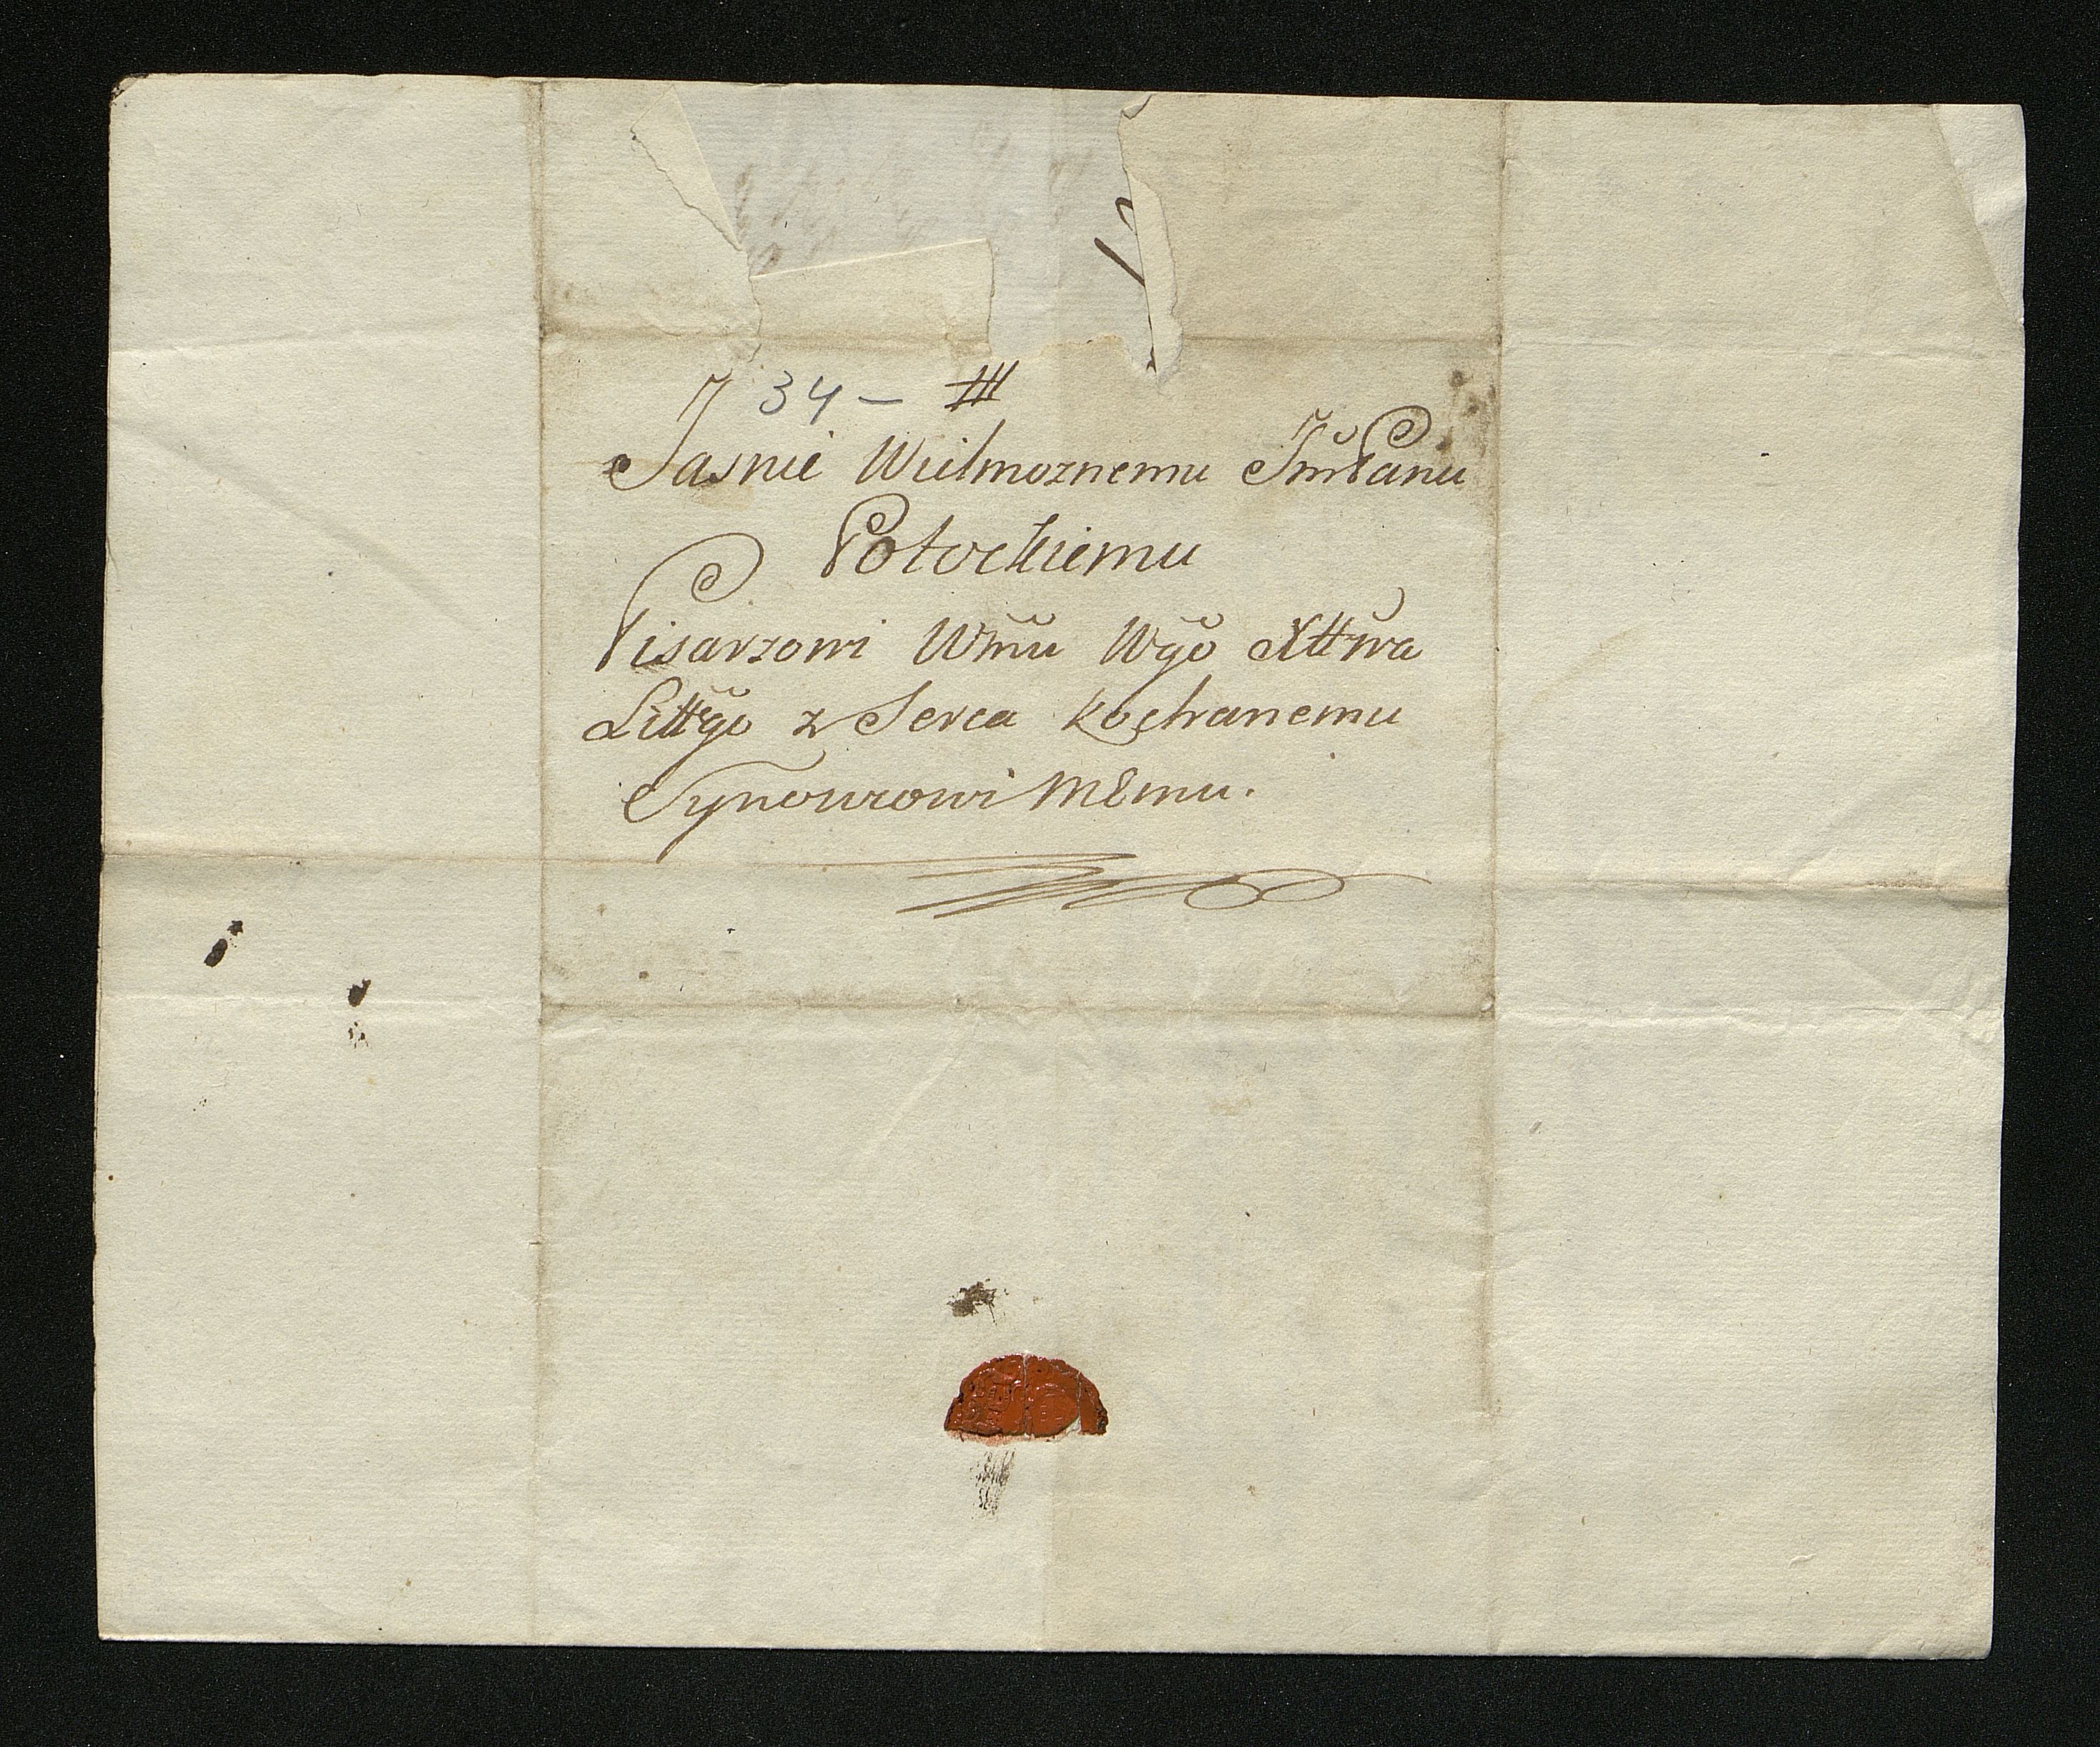 34 – III
Jasnie Wielmoznemu JmPanu
Potockiemu
Pisarzowi Wmu Wgo Xttwa
Littgo z Serca kochanemu
Synowcowi Memu.